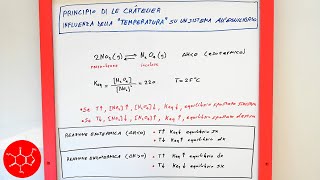 PRINCIPIO DI LE CHÂTELIER
INFLUENZA DELLA "TEMPERATURA" SU UN SISTEMA ALL'EQUILIBRIO
2NO₂(g) ⇌ N₂O₄(g) ΔH<0 (ESOTERMICA)
incolore
Keq = [N₂O₄] / [NO₂]² = 220 T=25°C
• Se T↑, [NO₂]↑, [N₂O₄]↓, Keq↓, equilibrio spostato sinistra
• Se T↓, [NO₂]↓, [N₂O₄]↑, Keq↑, equilibrio spostato destra
REAZIONE ESOTERMICA (ΔH<0) • T↑ Keq↓ equilibrio sx
• T↓ Keq↑ equilibrio dx
REAZIONE ENDOTERMICA (ΔH>0) • T↑ Keq↑ equilibrio dx
• T↓ Keq↓ equilibrio sx